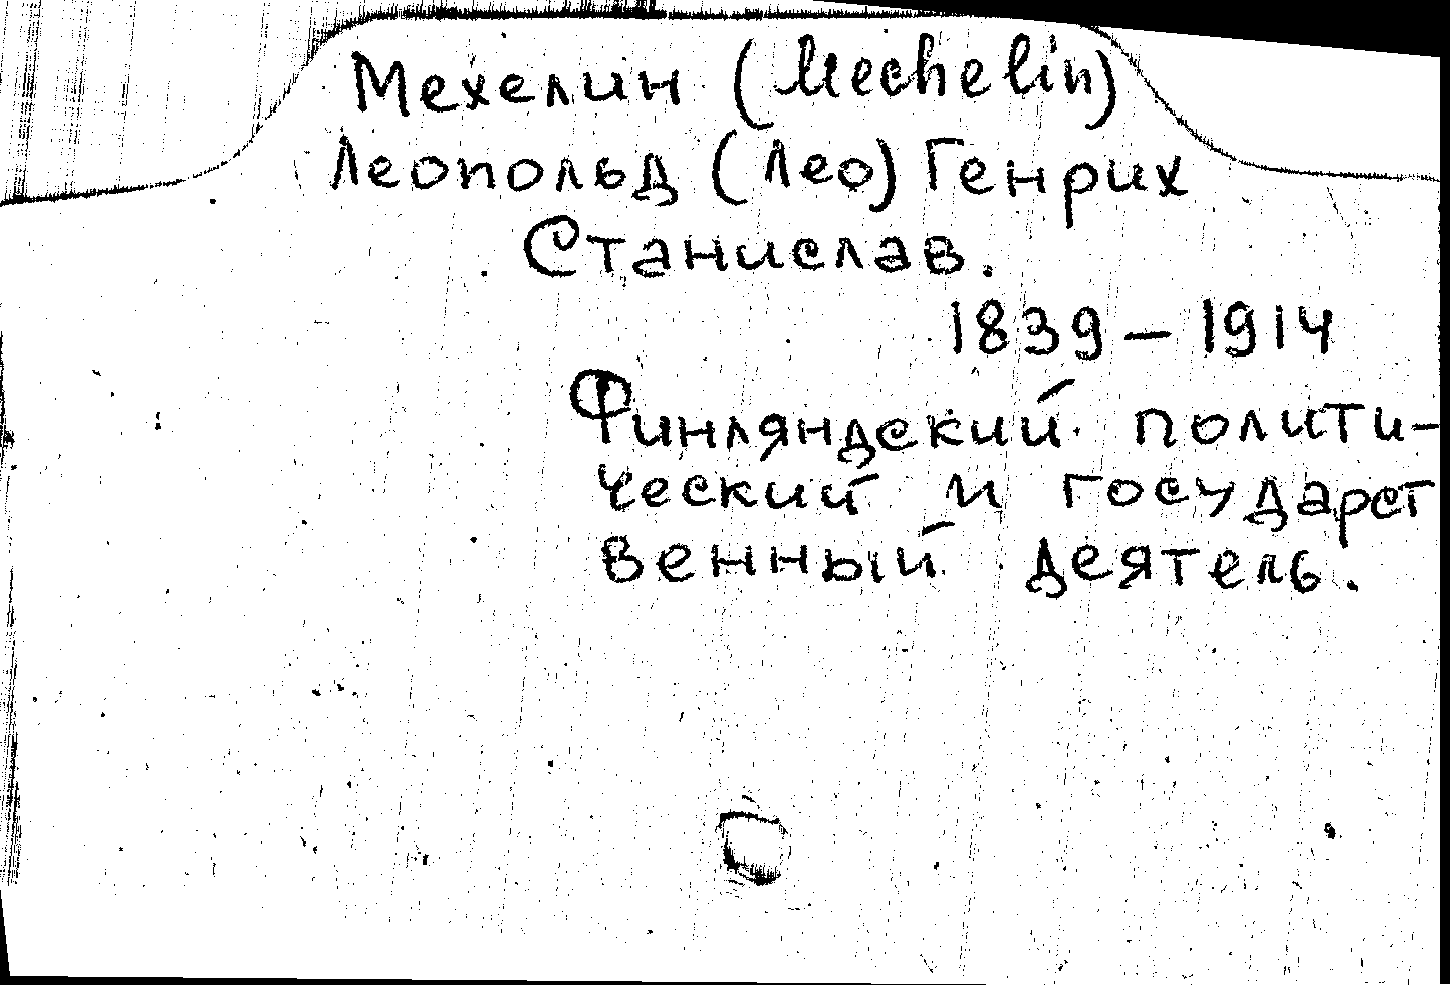 Мехелин (Mechelin)
Леопольд (Лео) Генрих
Станислав.
1839 – 1914
Финляндский полити-
ческий и государст
венный деятель.